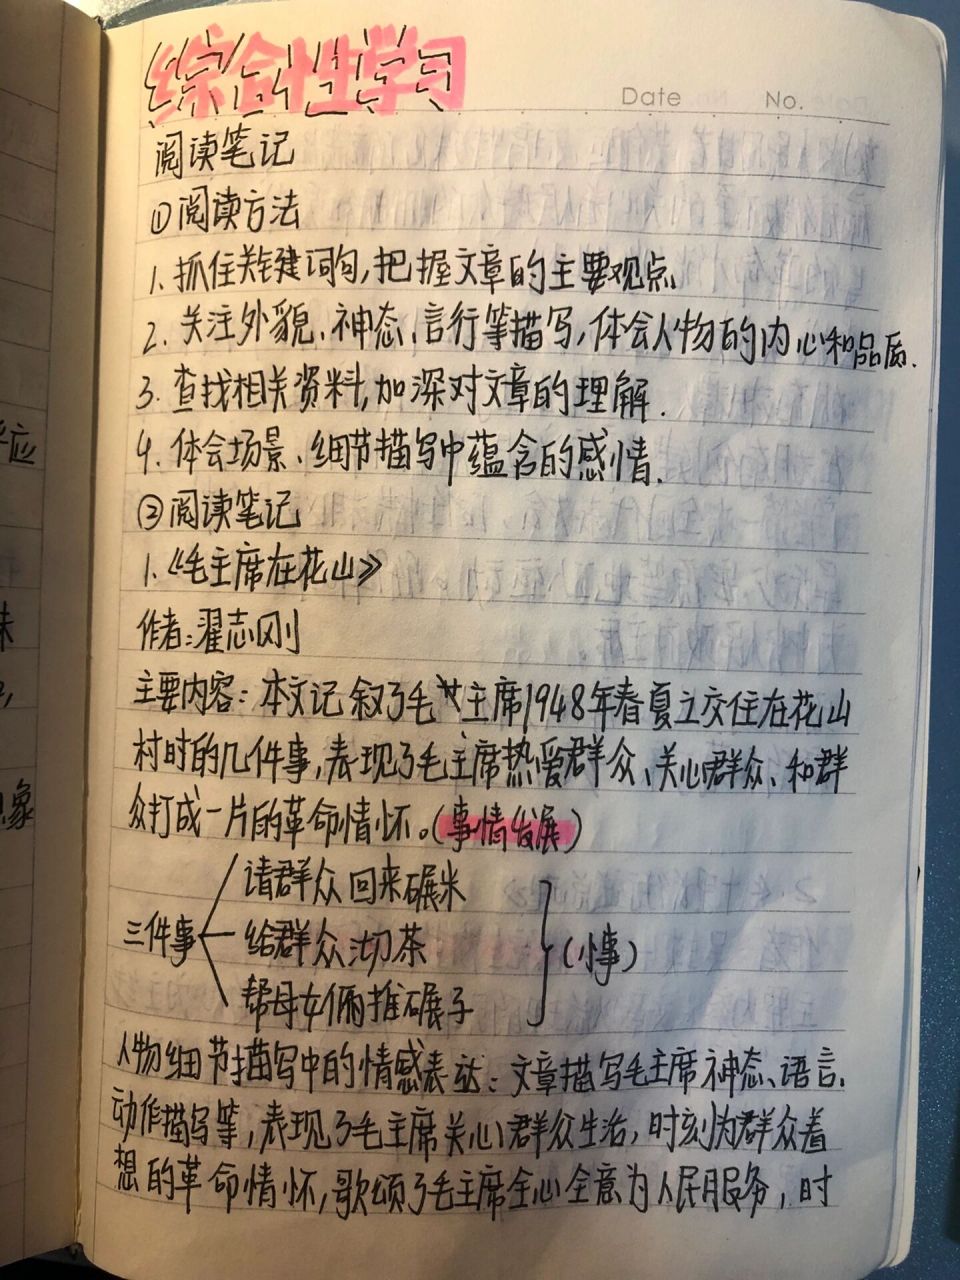 综合性学习
Date No.
阅读笔记
①阅读方法
1.抓住关键词句,把握文章的主要观点.
2.关注外貌、神态、言行等描写,体会人物的内心和品质.
3.查找相关资料,加深对文章的理解.
4.体会场景、细节描写中蕴含的感情.
②阅读笔记
1.《毛主席在花山》
作者:翟志刚
主要内容:本文记叙了毛主席1948年春夏之交住在花山
村时的几件事,表现了毛主席热爱群众、关心群众、和群
众打成一片的革命情怀。(事情发展)
请群众回来碾米
三件事 给群众沏茶 (小事)
帮母女俩推碾子
人物细节描写中的情感表达:文章描写毛主席神态、语言、
动作描写等,表现了毛主席关心群众生活,时刻为群众着
想的革命情怀,歌颂了毛主席全心全意为人民服务,时
应
味
象